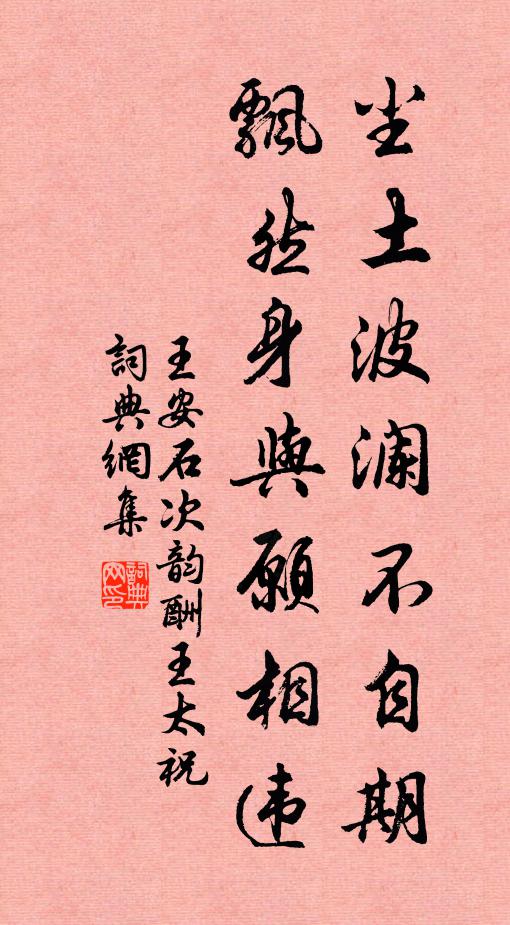 尘土波澜不自期
飘然身與願相违
王安石次韵酬王太祝
詞典網集
詞典
网印